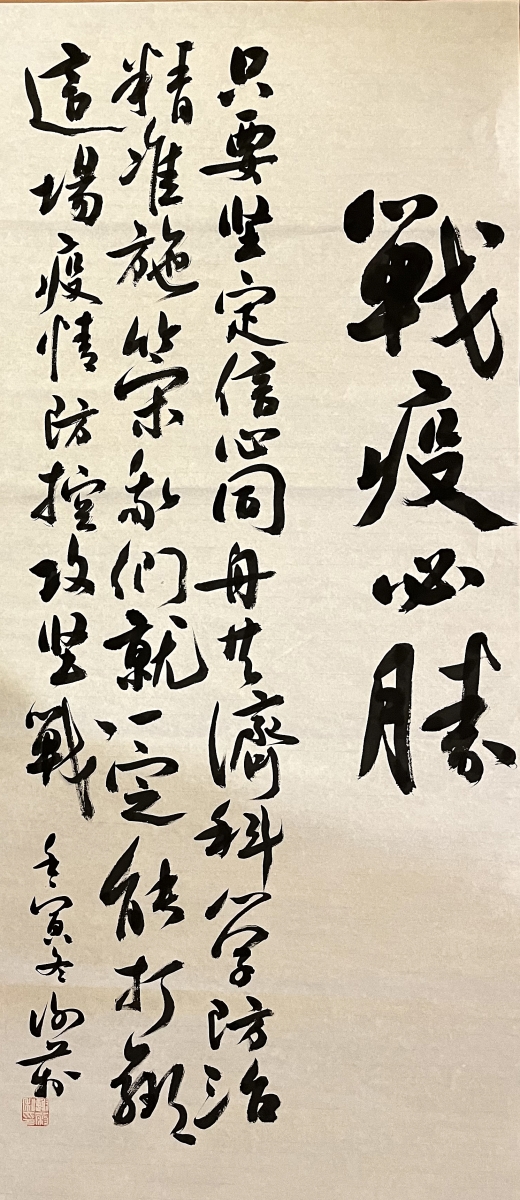 戰疫必勝
只要坚定信心同舟共濟科学防治
精准施策我们就一定能打
這場疫情防控攻坚戰
壬寅冬